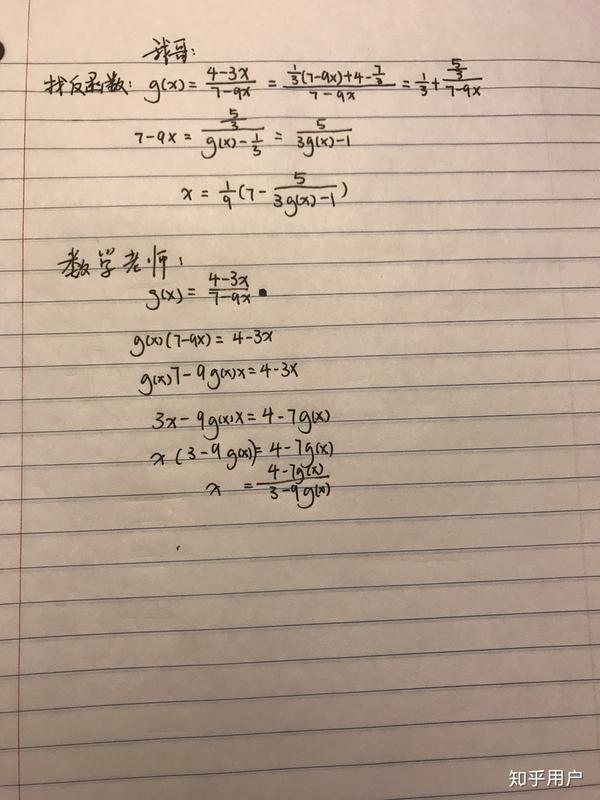 我哥:
找反函数: g(x) = \frac{4-3x}{7-9x} = \frac{\frac{1}{3}(7-9x)+4-\frac{7}{3}}{7-9x} = \frac{1}{3} + \frac{\frac{5}{3}}{7-9x}
7-9x = \frac{\frac{5}{3}}{g(x)-\frac{1}{3}} = \frac{5}{3g(x)-1}
x = \frac{1}{9}(7-\frac{5}{3g(x)-1})
数学老师:
g(x) = \frac{4-3x}{7-9x}
g(x)(7-9x) = 4-3x
g(x)7-9g(x)x=4-3x
3x-9g(x)x=4-7g(x)
x(3-9g(x))=4-7g(x)
x = \frac{4-7g(x)}{3-9g(x)}
知乎用户